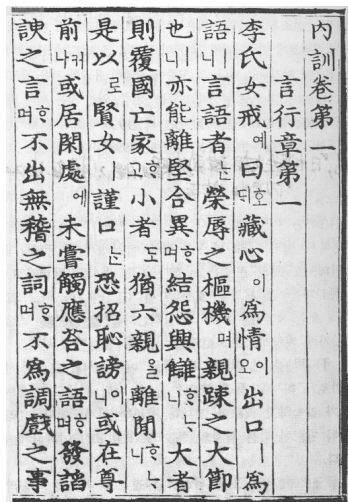 內訓卷第一
言行章第一
李氏女戒예曰호ᄃᆡ藏心이爲情이오出口ㅣ爲
語ㅣ니言語者ᄂᆞᆫ榮辱之樞機며親疎之大節
也ㅣ니亦能離堅合異ᄒᆞ며結怨興讎ᄒᆞᄂᆞ니大者
則覆國亡家ᄒᆞ고小者도猶六親을離閒ᄒᆞᄂᆞ니
是以로賢女ㅣ謹口ᄂᆞᆫ恐招恥謗이니或在尊
前커나或居閑處에未嘗觸應荅之語ᄒᆞ며發諂
諛之言ᄒᆞ며不出無稽之詞ᄒᆞ며不爲調戲之事